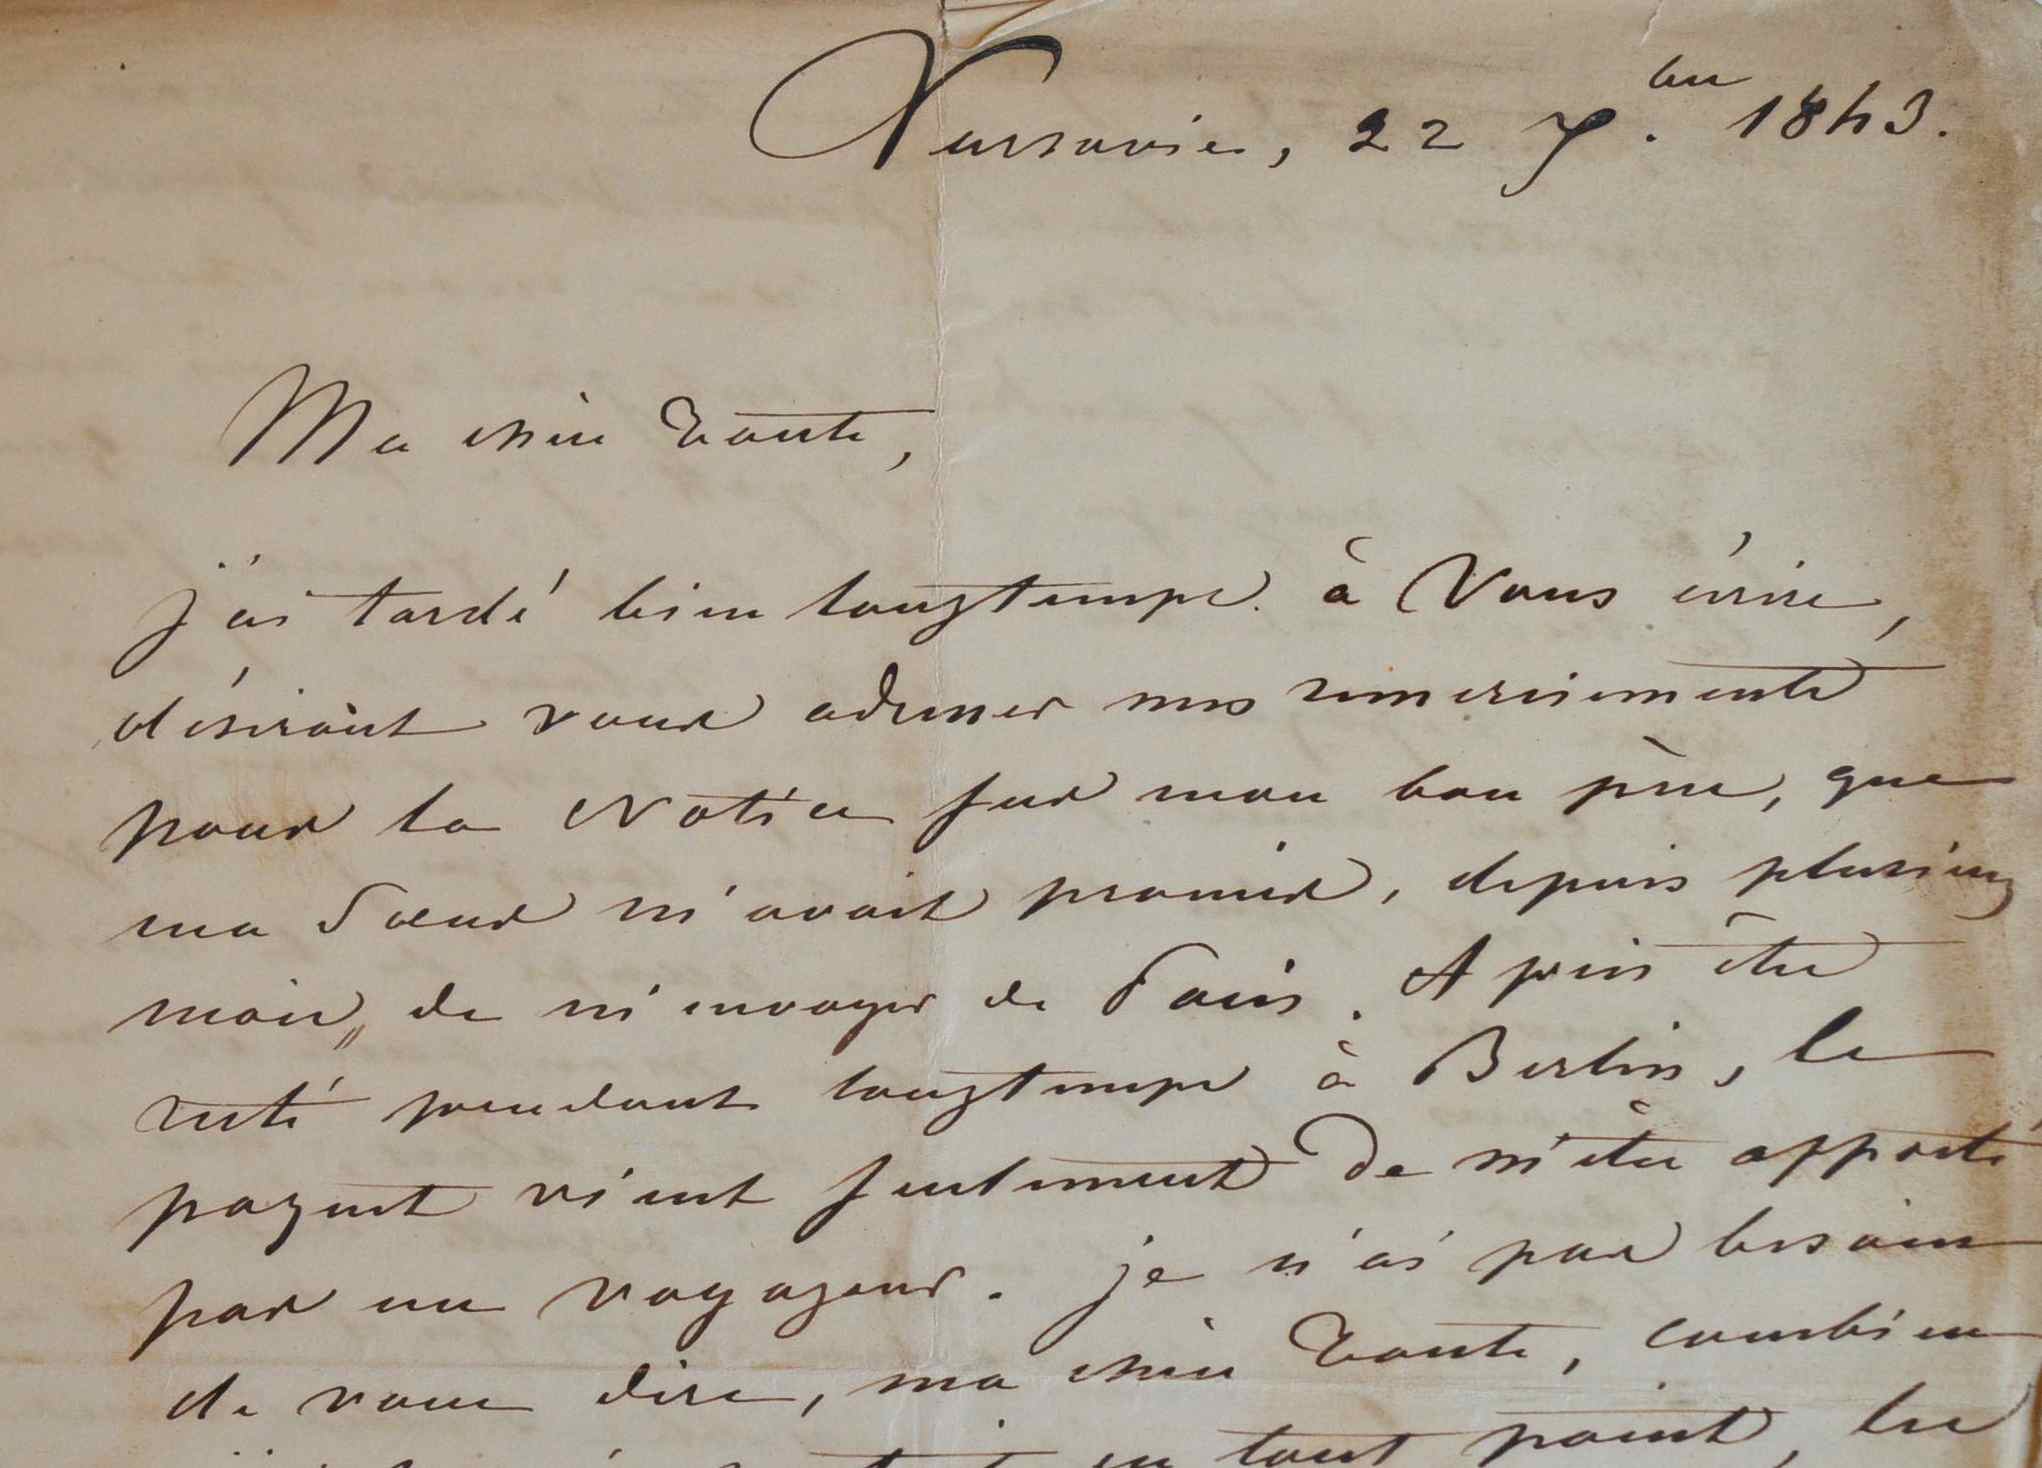 Varsovie, 22 7.bre 1843.
Ma chère Tante,
j'ai tardé bien longtemps à Vous écrire,
désirant vous adresser mes remerciements
pour la Notice sur mon bon père, que
ma Soeur m'avait promis, depuis plusieurs
mois, de m'envoyer de Paris. Après être
resté pendant longtemps à Berlin, le
paquet vient seulement de m'être apporté
par un voyageur. je n'ai pas besoin
de vous dire, ma chère Tante, combien
en tout point,